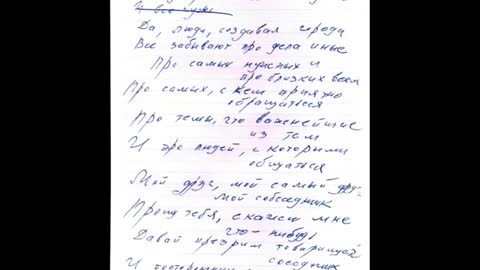 Да, люди, создавая города
Все забывают про дела иные
Про самых нужных и
про близких всем
Про самых, с кем приятно
обращаться
Про темы, что важнейшие
из тем
И про людей, с которыми
общаться
Мой друг, мой самый друг
Мой собеседник
Прошу тебя, скажи мне
что-нибудь
Давай презрим товарищей
соседних
И